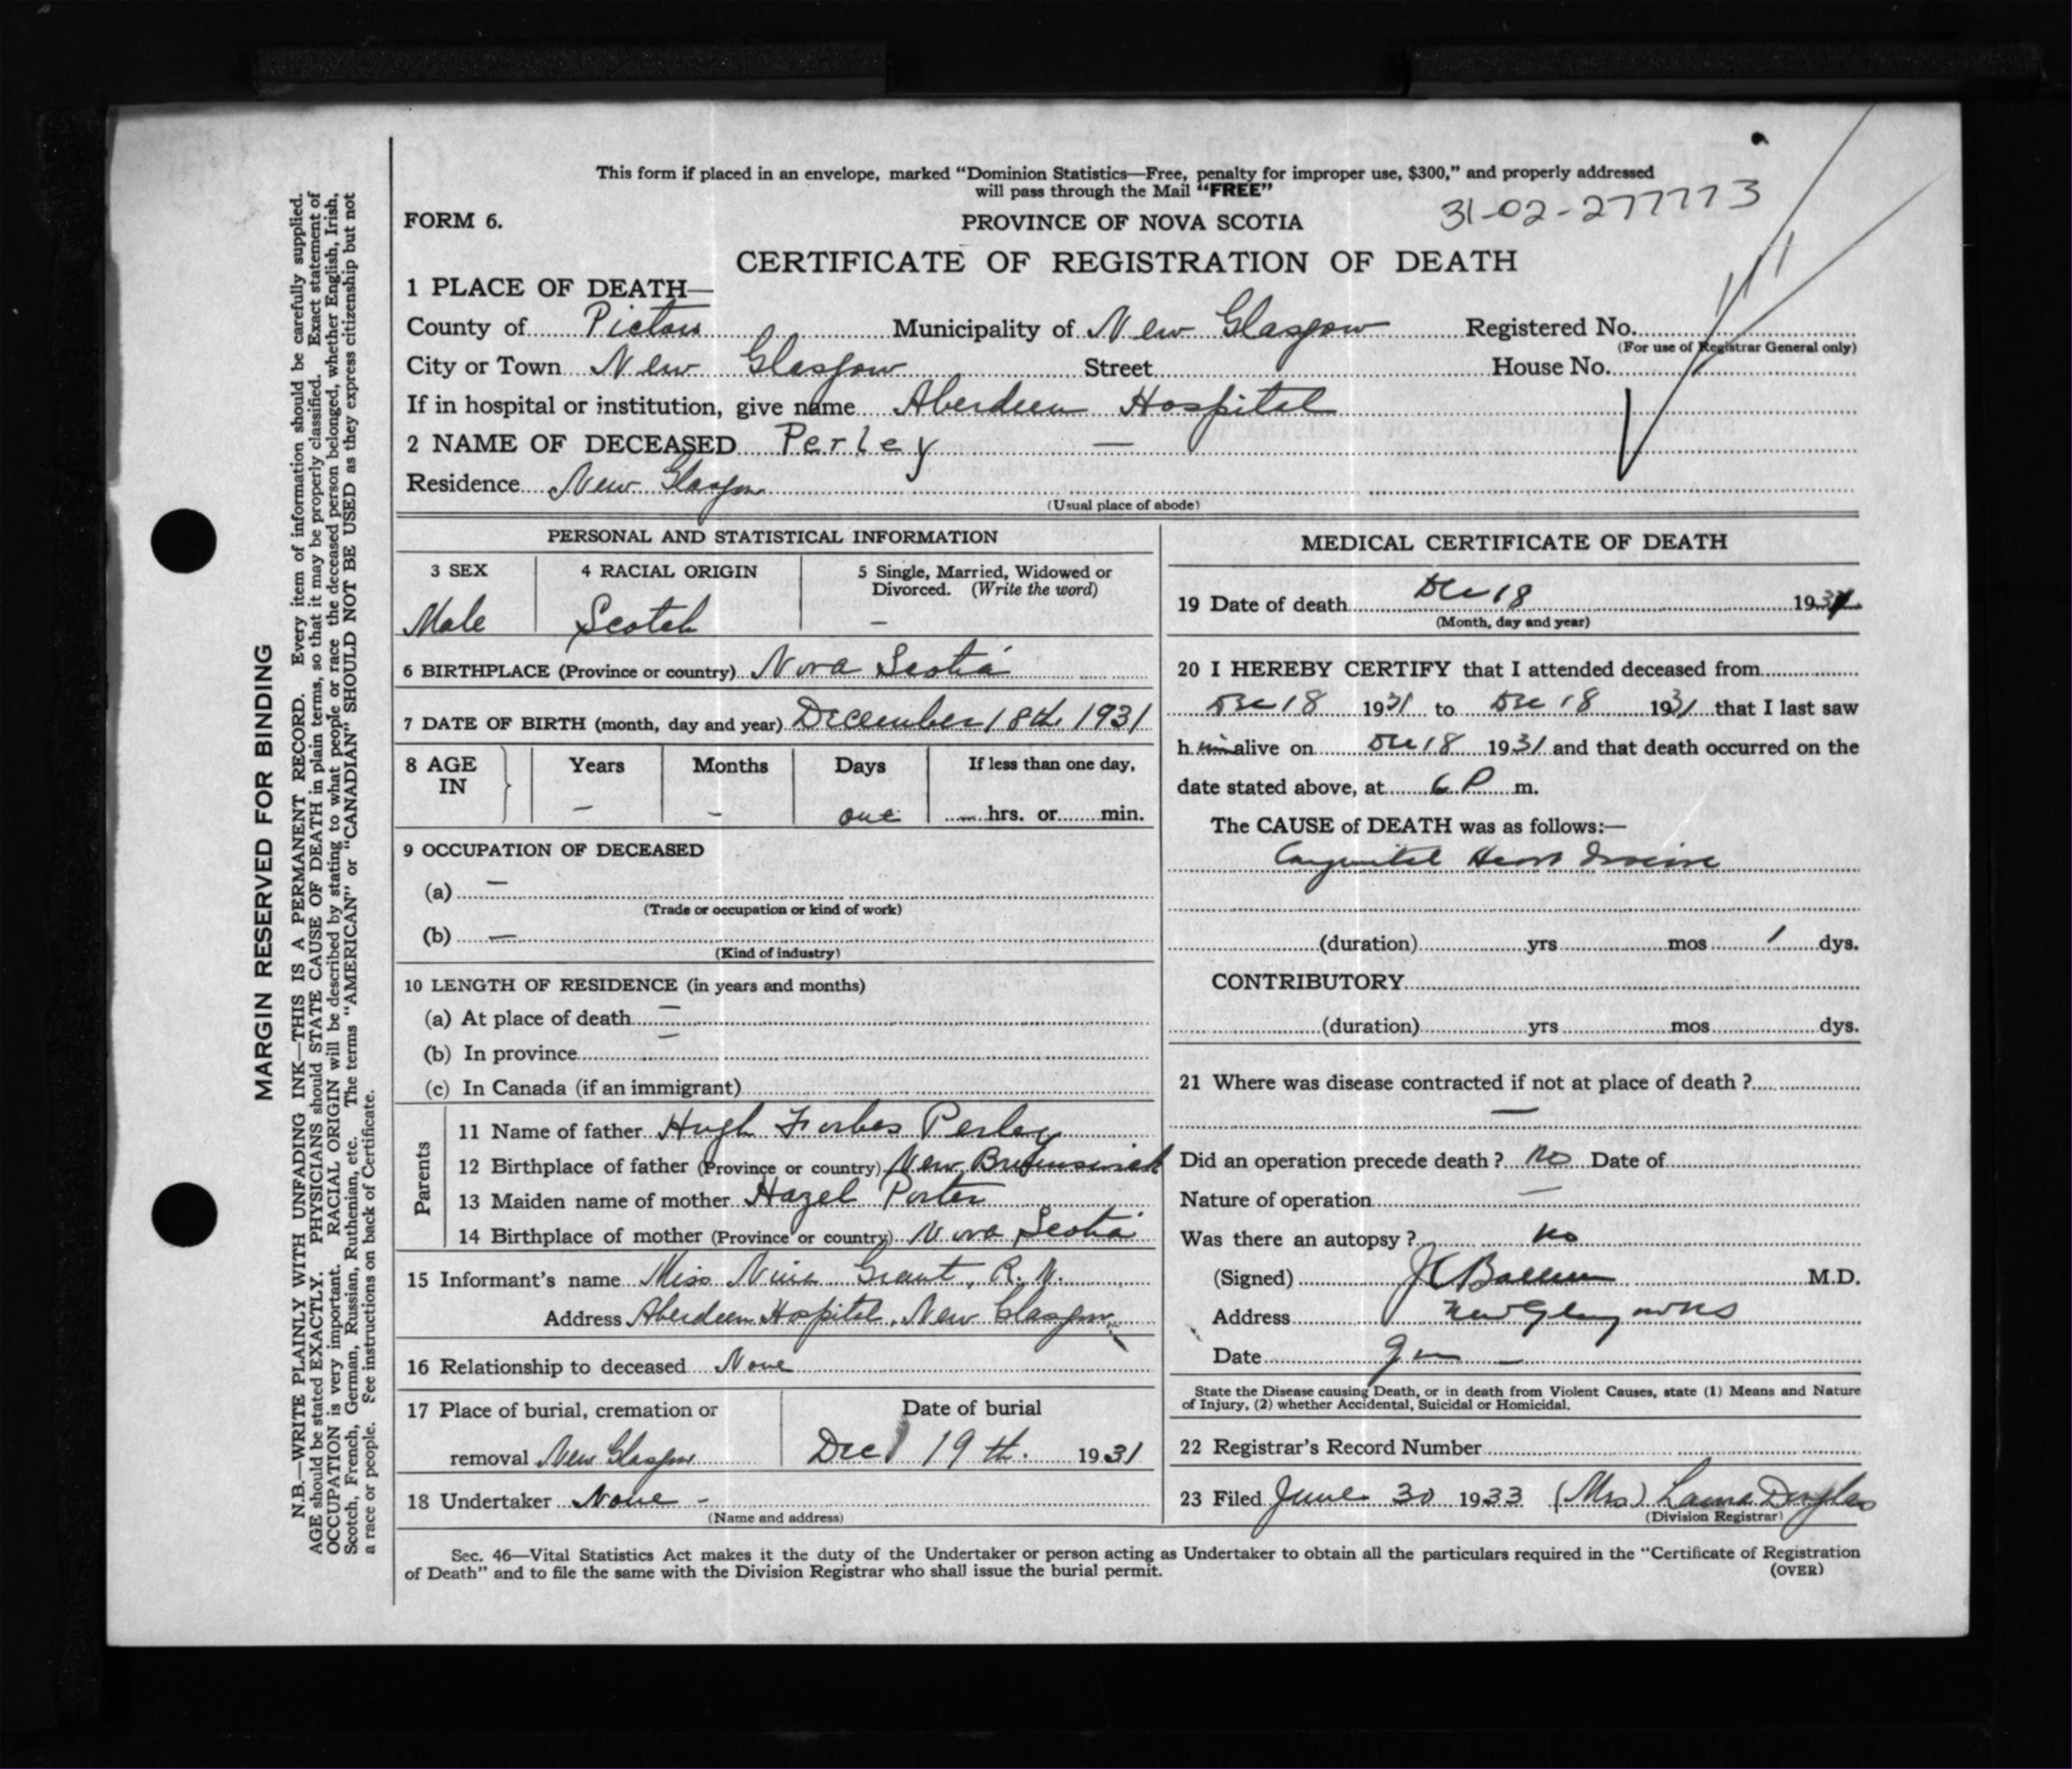 This form if placed in an envelope, marked “Dominion Statistics—Free, penalty for improper use, $300,” and properly addressed
will pass through the Mail “FREE”
31-02-277773
FORM 6.
PROVINCE OF NOVA SCOTIA
CERTIFICATE OF REGISTRATION OF DEATH
1 PLACE OF DEATH—
County of Pictou Municipality of New Glasgow Registered No.
(For use of Registrar General only)
City or Town New Glasgow Street House No.
If in hospital or institution, give name Aberdeen Hospital
2 NAME OF DECEASED Perley —
Residence New Glasgow
(Usual place of abode)
PERSONAL AND STATISTICAL INFORMATION
3 SEX 4 RACIAL ORIGIN 5 Single, Married, Widowed or
Divorced. (Write the word)
Male Scotch –
6 BIRTHPLACE (Province or country) Nova Scotia
7 DATE OF BIRTH (month, day and year) December 18th 1931
8 AGE Years Months Days If less than one day,
IN
– – one hrs. or min.
9 OCCUPATION OF DECEASED
(a) –
(Trade or occupation or kind of work)
(b) —
(Kind of industry)
10 LENGTH OF RESIDENCE (in years and months)
(a) At place of death —
(b) In province —
(c) In Canada (if an immigrant)
Parents
11 Name of father Hugh Forbes Perley
12 Birthplace of father (Province or country) New Brunswick
13 Maiden name of mother Hazel Porter
14 Birthplace of mother (Province or country) Nova Scotia
15 Informant's name Miss Nina Grant, R. N.
Address Aberdeen Hospital, New Glasgow
16 Relationship to deceased None
17 Place of burial, cremation or Date of burial
removal New Glasgow Dec 19th. 1931
18 Undertaker None -
(Name and address)
MEDICAL CERTIFICATE OF DEATH
19 Date of death Dec 18 1931
(Month, day and year)
20 I HEREBY CERTIFY that I attended deceased from
Dec 18 1931 to Dec 18 1931 that I last saw
h im alive on Dec 18 1931 and that death occurred on the
date stated above, at 6 P m.
The CAUSE of DEATH was as follows:—
Congenital Heart Disease
(duration) yrs mos 1 dys.
CONTRIBUTORY
(duration) yrs mos dys.
21 Where was disease contracted if not at place of death ?
—
Did an operation precede death ? no Date of
Nature of operation —
Was there an autopsy ? no
(Signed) M.D.
Address New Glasgow NS
Date
State the Disease causing Death, or in death from Violent Causes, state (1) Means and Nature
of Injury, (2) whether Accidental, Suicidal or Homicidal.
22 Registrar's Record Number
23 Filed June 30 1933 (Mrs) Laura Douglas
(Division Registrar)
Sec. 46—Vital Statistics Act makes it the duty of the Undertaker or person acting as Undertaker to obtain all the particulars required in the “Certificate of Registration
of Death” and to file the same with the Division Registrar who shall issue the burial permit.
(OVER)
MARGIN RESERVED FOR BINDING
N.B.—WRITE PLAINLY WITH UNFADING INK—THIS IS A PERMANENT RECORD. Every item of information should be carefully supplied.
AGE should be stated EXACTLY. PHYSICIANS should STATE CAUSE OF DEATH in plain terms, so that it may be properly classified. Exact statement of
OCCUPATION is very important. RACIAL ORIGIN will be described by stating to what people or race the deceased person belonged, whether English, Irish,
Scotch, French, German, Russian, Ruthenian, etc. The terms “AMERICAN” or “CANADIAN” SHOULD NOT BE USED as they express citizenship but not
a race or people. See instructions on back of Certificate.